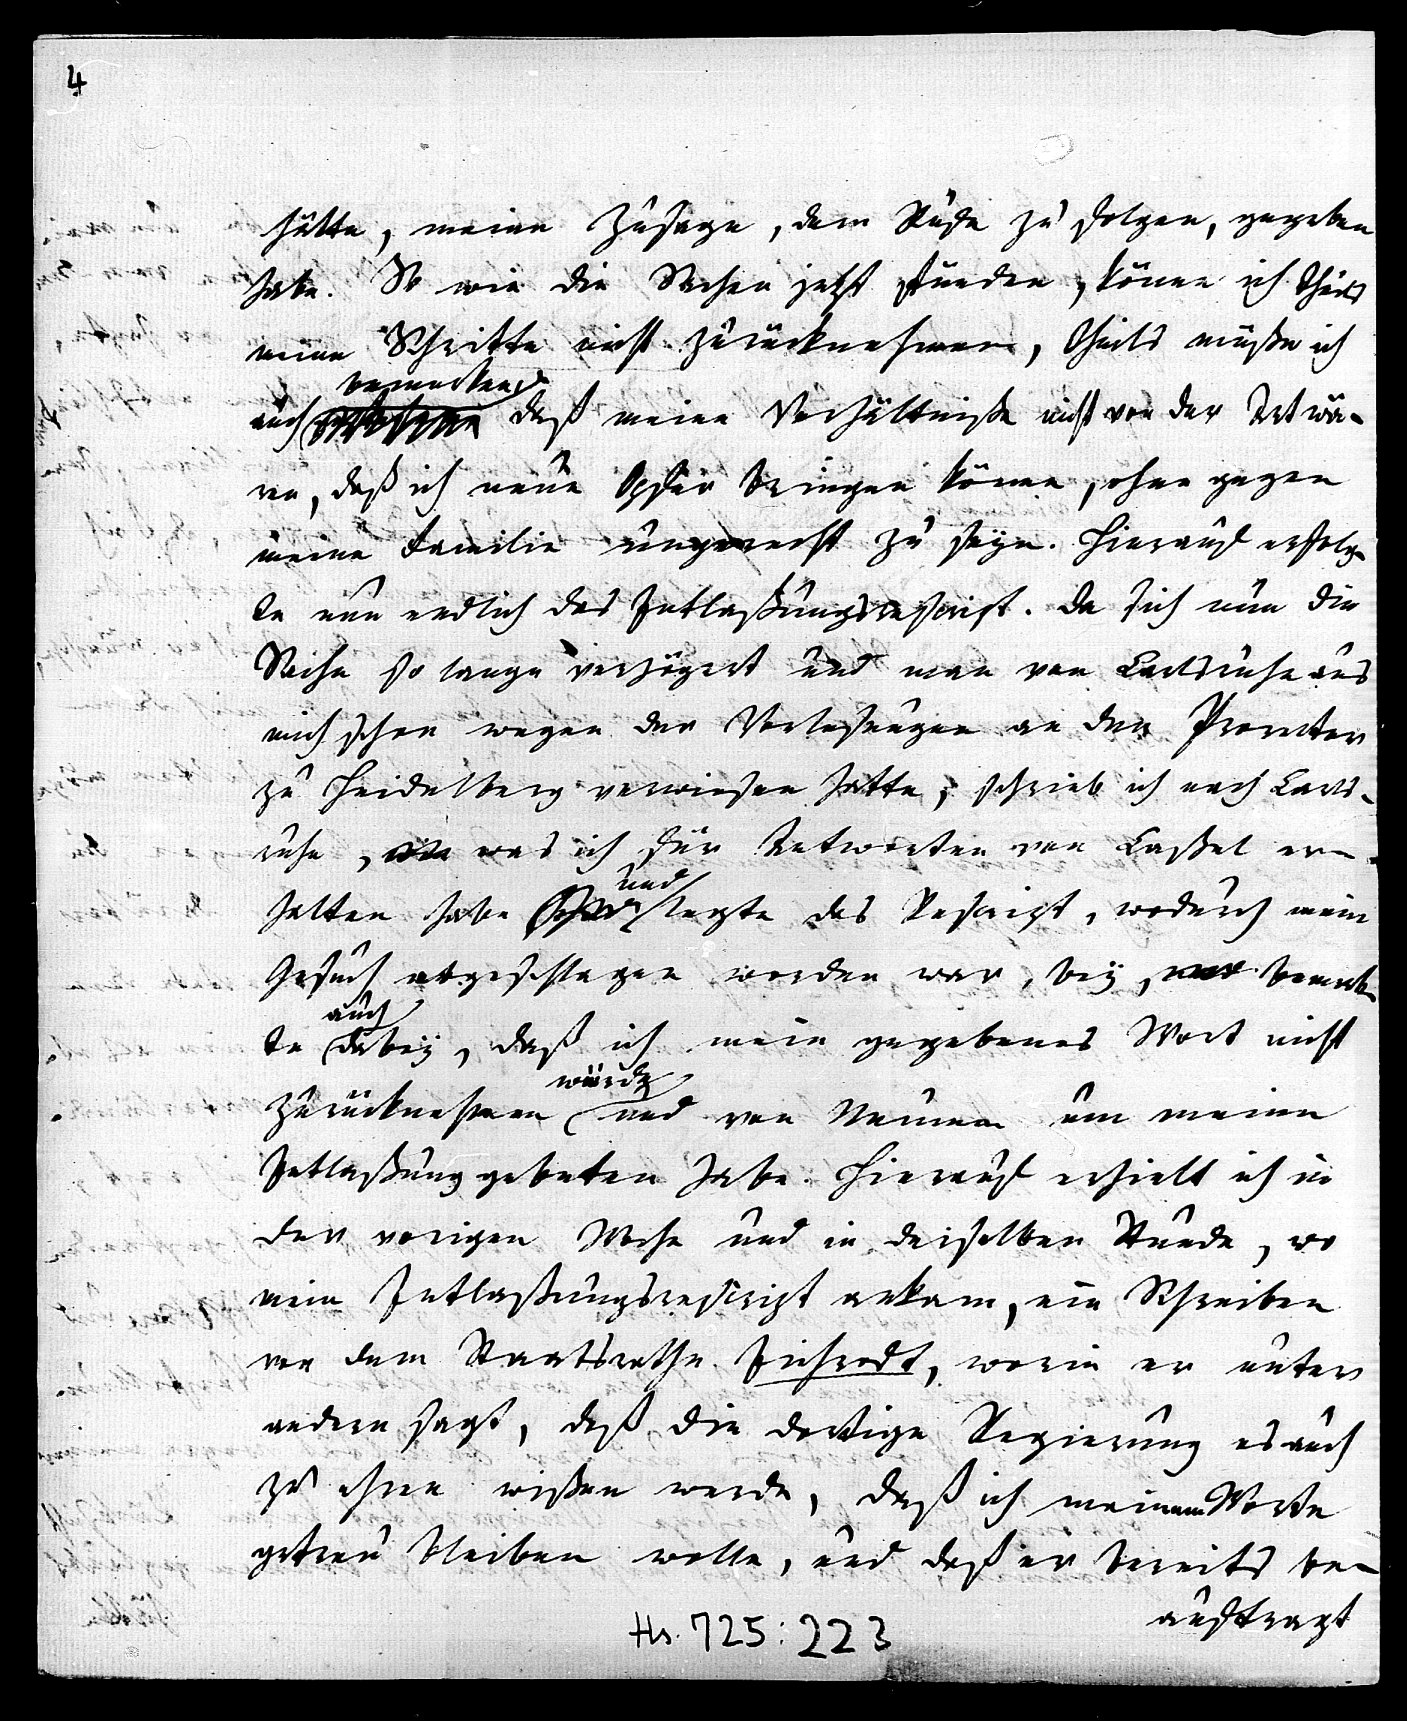 4
hätte, meine Zusage, dem Rufe zu folgen, gegeben
habe. So wie die Sachen jetzt stünden, könne ich theils
meine Schritte nicht zurücknehmen, theils müße ich
bemerken
auch daß meine Verhältniße nicht von der Art wä-
ren, daß ich neue Opfer bringen könne, ohne gegen
meine Familie ungerecht zu seyn. Hierauf erfolg-
te nun endlich das Entlaßungsrescript. Da sich nun die
Sache so lange verzögert und man von Carlsruhe aus
mich schon wegen der Vorlesungen an den Prorector
zu Heidelberg verwiesen hatte, schrieb ich nach Carls-
ruhe, was ich für Antworten von Caßel er-
und
halten habe legte das Rescript, wodurch mein
Gesuch abgeschlagen worden war, bey, bemerk-
auch
te dabey, daß ich mein gegebenes Wort nicht
würde
zurücknehmen und von Neuem um meine
Entlaßung gebeten habe. Hierauf erhielt ich in
der vorigen Woche und in derselben Stunde, wo
mein Entlaßungsrescript ankam, ein Schreiben
von dem Staatsrathe Eichrodt, worin er unter
andern sagt, daß die dortige Regierung es auch
zu ehren wißen werde, daß ich meinem Worte
getreu bleiben wolle, und daß er bereits be-
auftragt
Hs. 725: 223